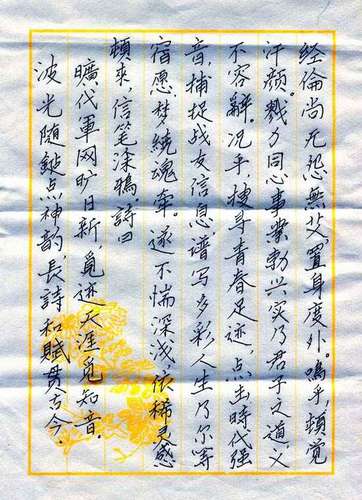 经倫尚无怨無父，置身度外。嗚乎，頓觉
汗颜。戮力同心事業勃兴实乃君子之道义
不容辭。况乎，搜寻青春足迹，点击時代强
音，捕捉战友信息，谱写多彩人生乃尔等
宿愿，梦繞魂牵。遂不惴深浅，依稀灵感
頓來，信笔涂鴉，詩曰
曠代軍网旷日新，覓迹天涯覓知音。
波光随鼠点神韵，長詩和賦贯古今。